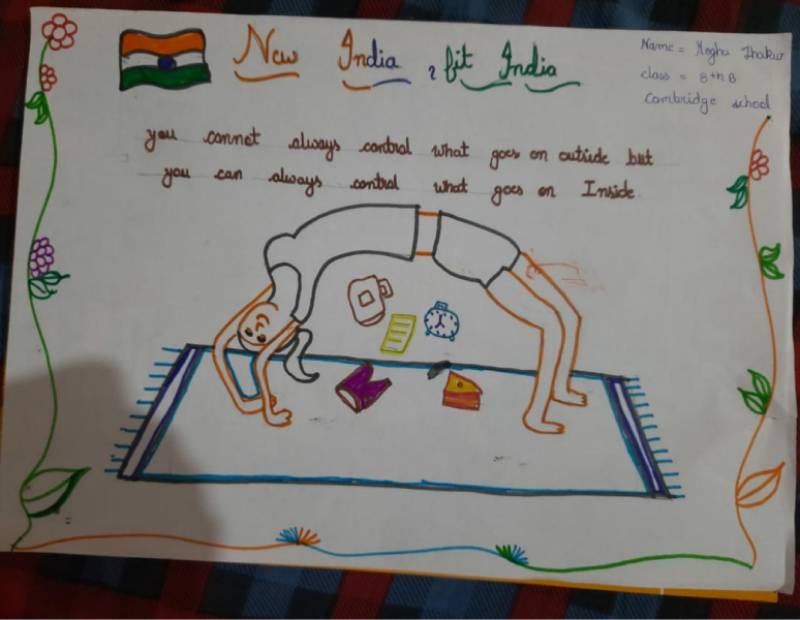 New India, fit India
Name = Megha Thakur
class = 8th B
Cambridge school
you cannot always control what goes on outside but
you can always control what goes on Inside.